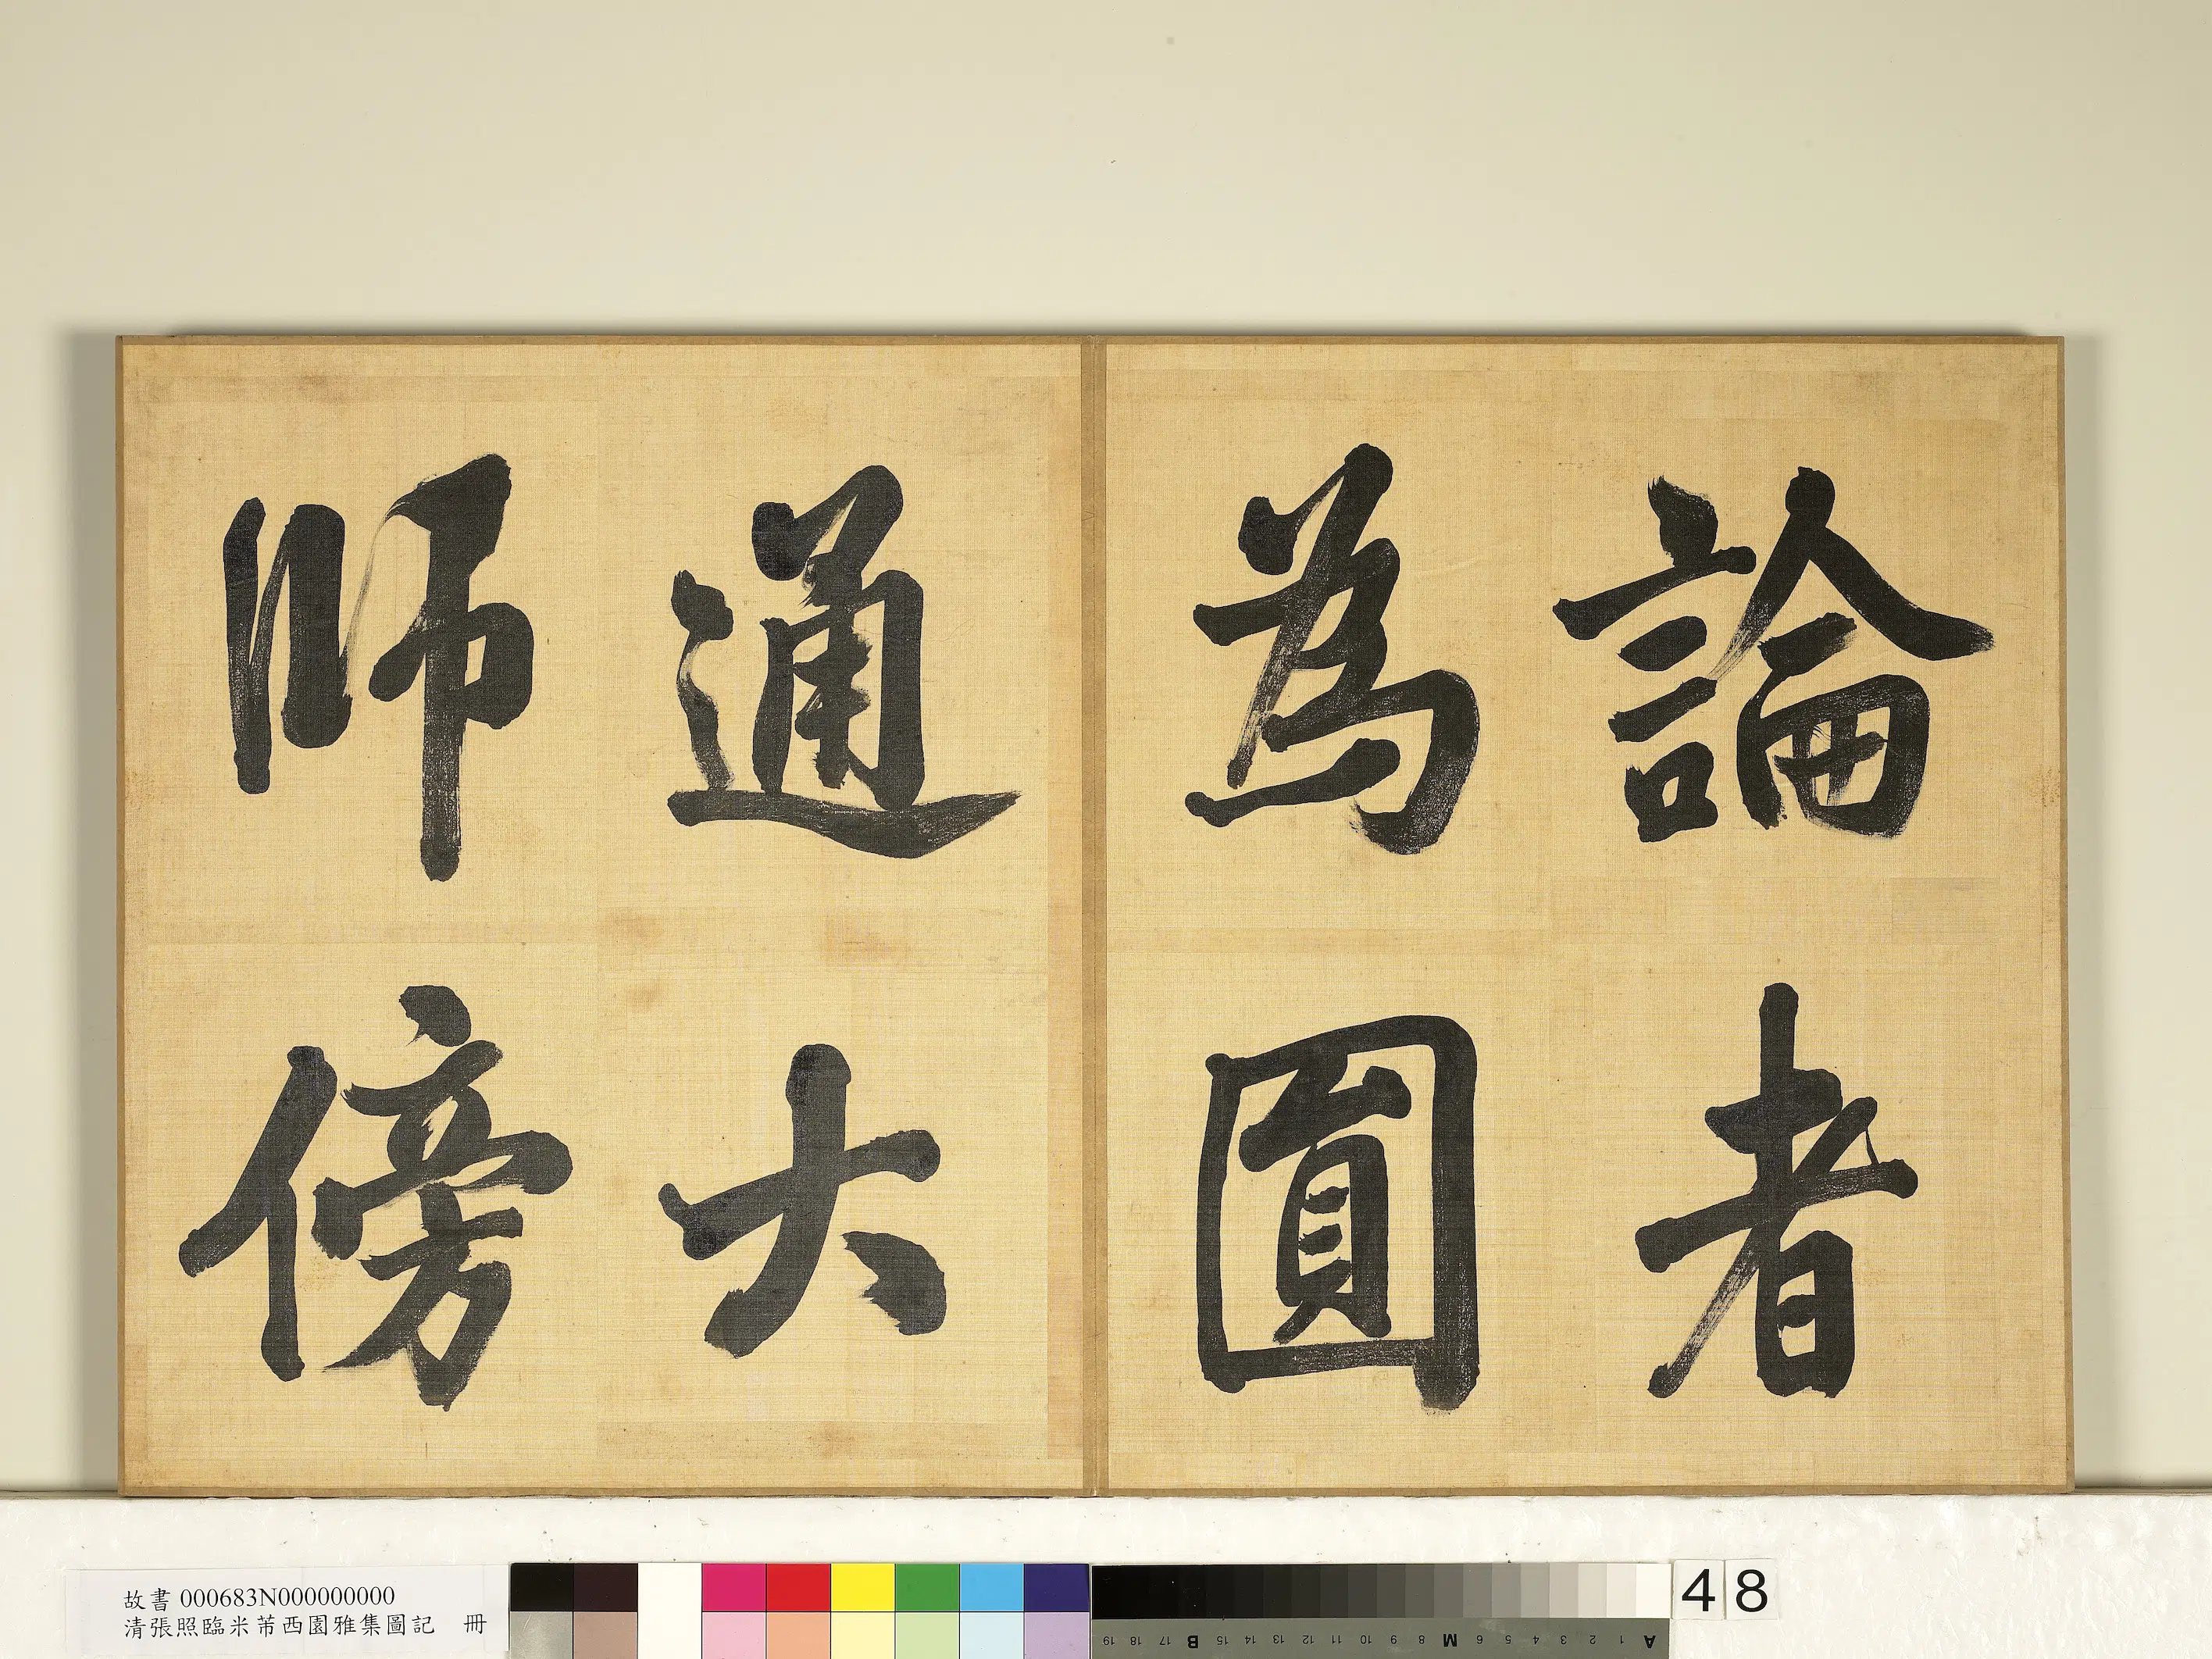 論者
為圓
通大
師傍
故書 000683N000000000
清張照臨米芾西園雅集圖記 冊
48
19 18 17 B 15 14 13 12 11 10 9 8 M 6 5 4 3 2 1 A